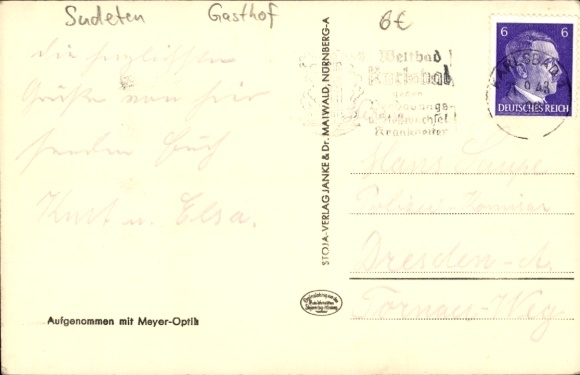 Sudeten Gasthof 6€
die herzlichsten
Grüße von hier
senden Euch
Kurt u. Elsa.
Aufgenommen mit Meyer-Optik
STOJA-VERLAG JANKE & Dr. MAIWALD, NÜRNBERG-A
Weltbad
Karlsbad
gegen
Verdauungs-
u. Stoffwechsel
Krankheiten
KARLSBAD
6 6
DEUTSCHES REICH
Hans
Dresden-A.
Tornau-Weg